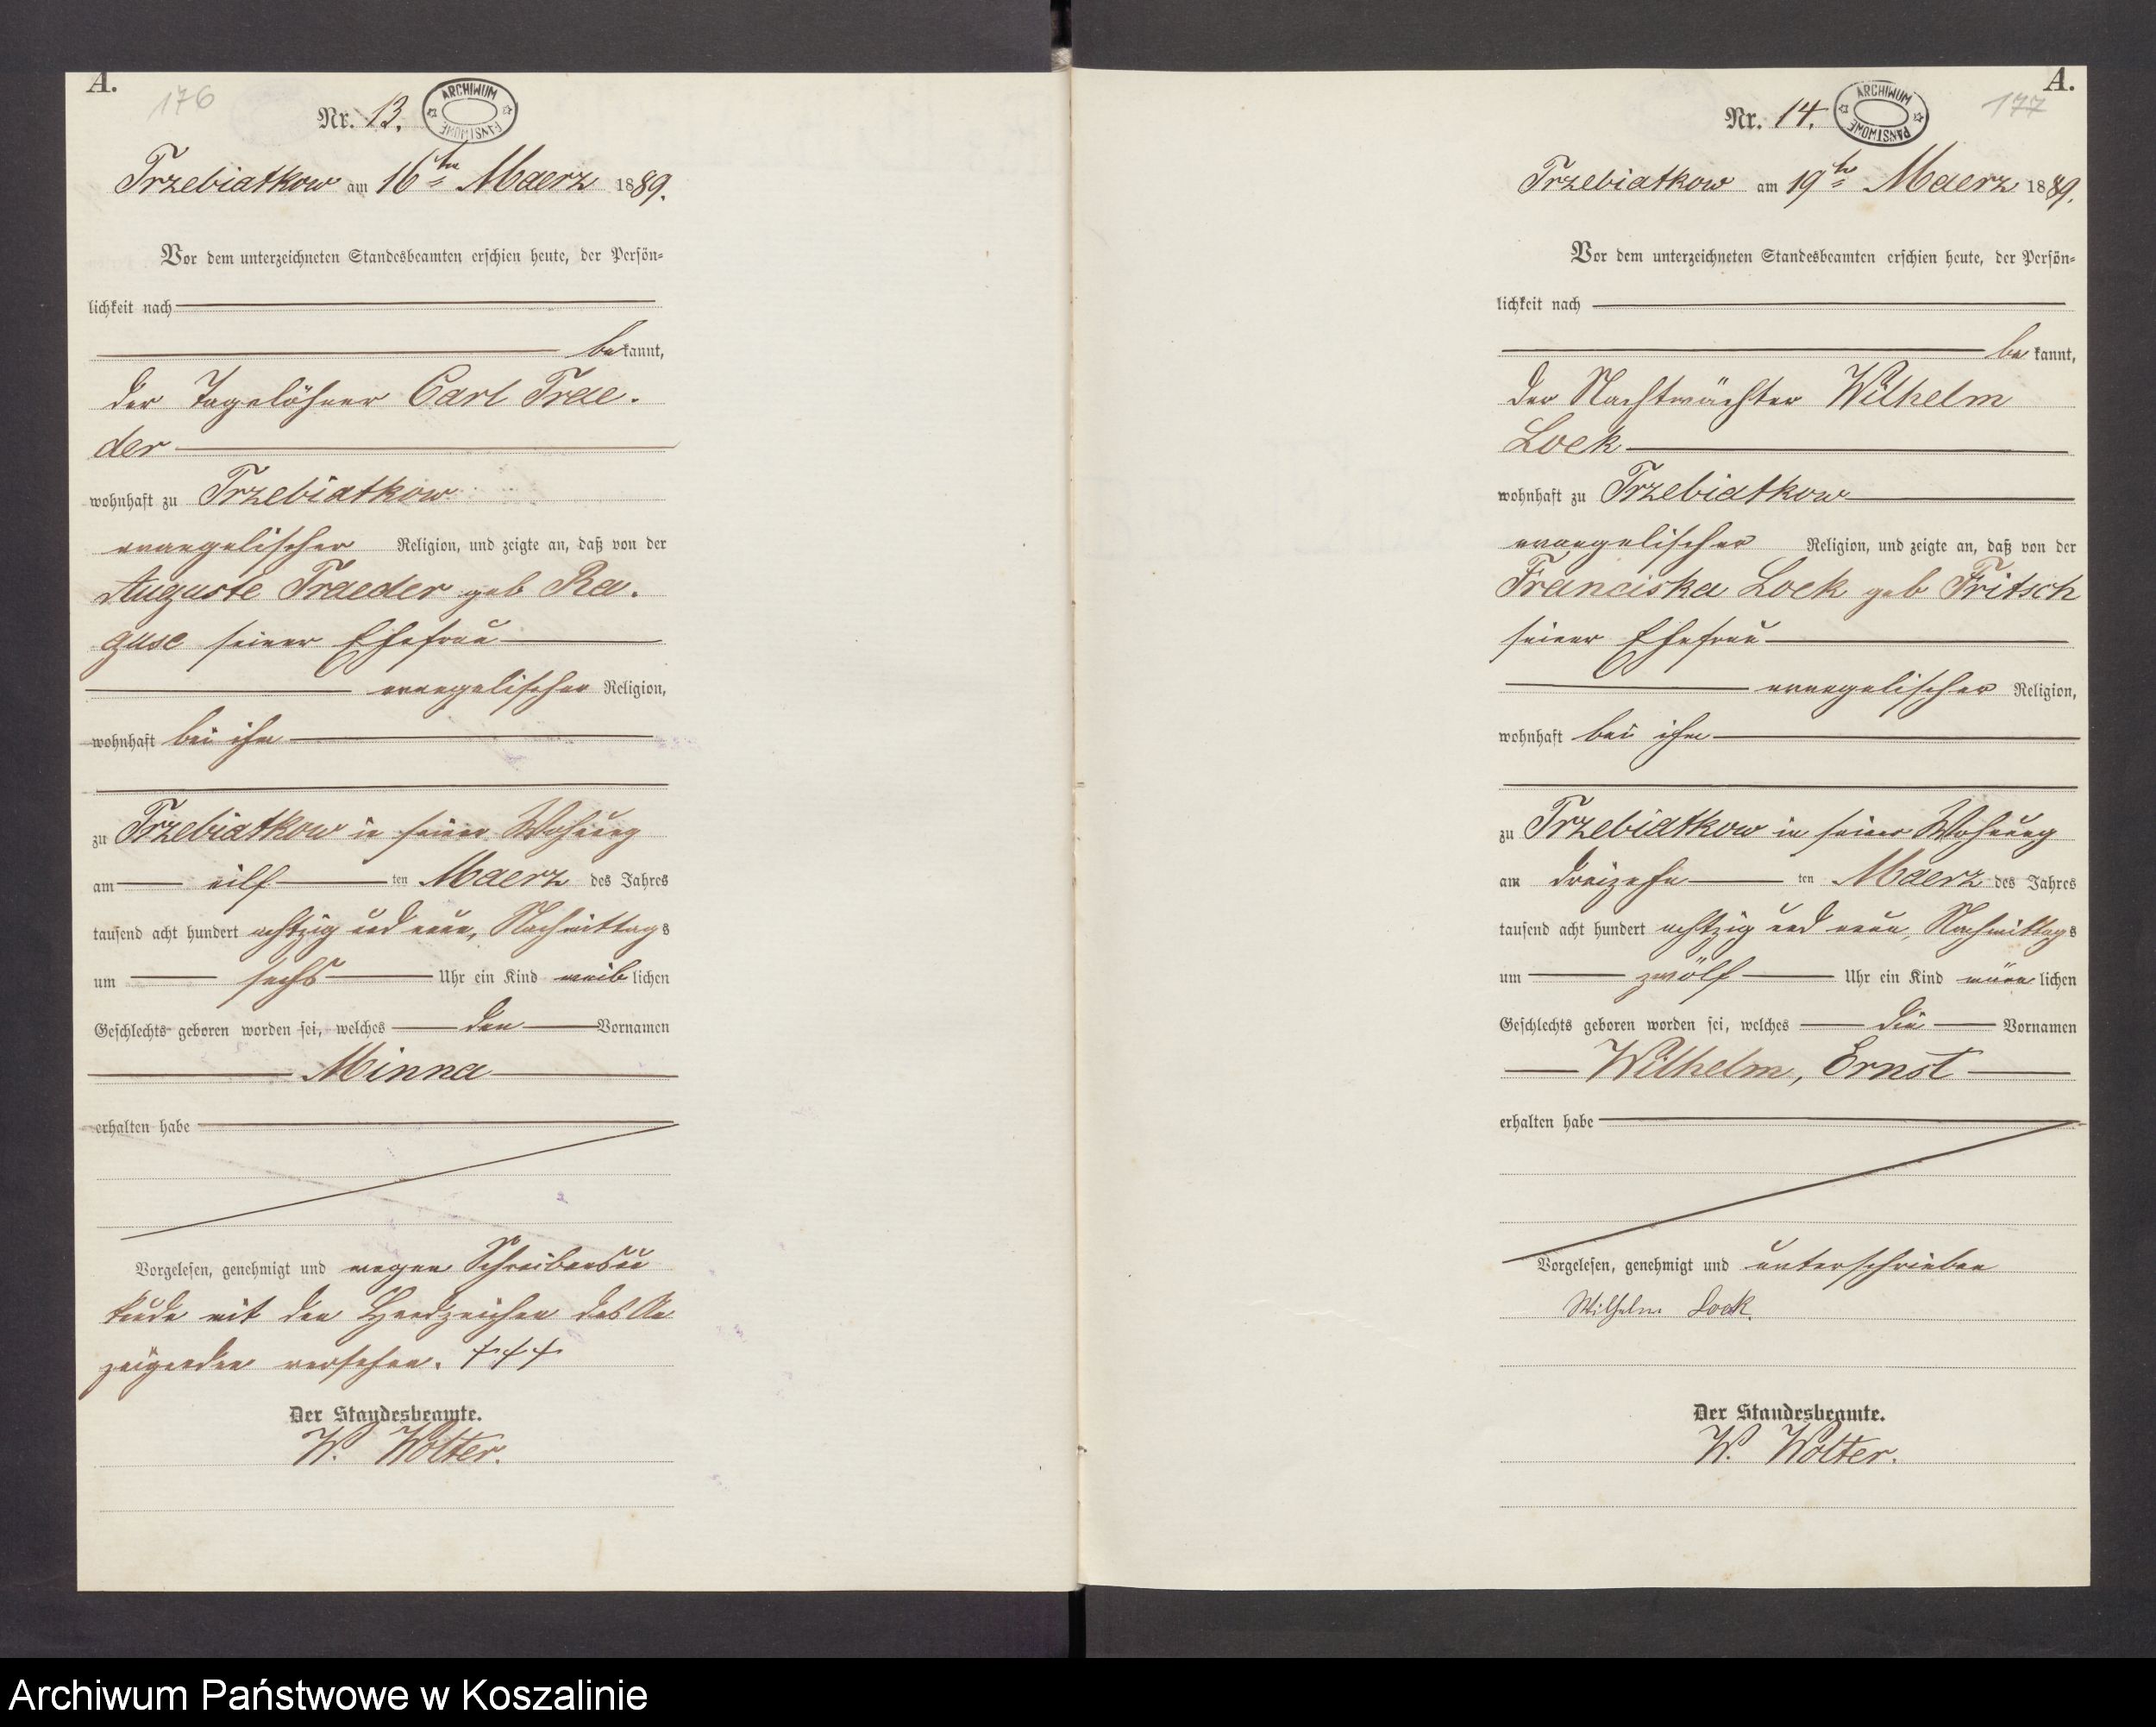 A.
176
Nr. 13.
ARCHIWUM PAŃSTWOWE
Trzebiatkow am 16ten Maerz 1889.
Vor dem unterzeichneten Standesbeamten erschien heute, der Persön-
lichkeit nach
bekannt,
der Tagelöhner Carl Trae-
der
wohnhaft zu Trzebiatkow
evangelischer Religion, und zeigte an, daß von der
Auguste Traeder geb Ra-
guse seiner Ehefrau
evangelischer Religion,
wohnhaft bei ihm
zu Trzebiatkow in seiner Wohnung
am eilf ten Maerz des Jahres
tausend acht hundert achtzig und neun, Nachmittags
um sechs Uhr ein Kind weiblichen
Geschlechts geboren worden sei, welches den Vornamen
Minna
erhalten habe
Vorgelesen, genehmigt und wegen Schreibensun
kunde mit den Handzeichen des An
zeigenden versehen. +++
Der Standesbeamte.
W. Wolter.
A.
177
Nr. 14.
ARCHIWUM PAŃSTWOWE
Trzebiatkow am 19ten Maerz 1889.
Vor dem unterzeichneten Standesbeamten erschien heute, der Persön-
lichkeit nach
bekannt,
der Nachtwächter Wilhelm
Loek
wohnhaft zu Trzebiatkow
evangelischer Religion, und zeigte an, daß von der
Franciska Loek geb Fritsch
seiner Ehefrau
evangelischer Religion,
wohnhaft bei ihm
zu Trzebiatkow in seiner Wohnung
am dreizehn ten Maerz des Jahres
tausend acht hundert achtzig und neun, Nachmittags
um zwölf Uhr ein Kind männlichen
Geschlechts geboren worden sei, welches die Vornamen
Wilhelm, Ernst
erhalten habe
Vorgelesen, genehmigt und unterschrieben
Wilhelm Loek.
Der Standesbeamte.
W. Wolter.
Archiwum Państwowe w Koszalinie